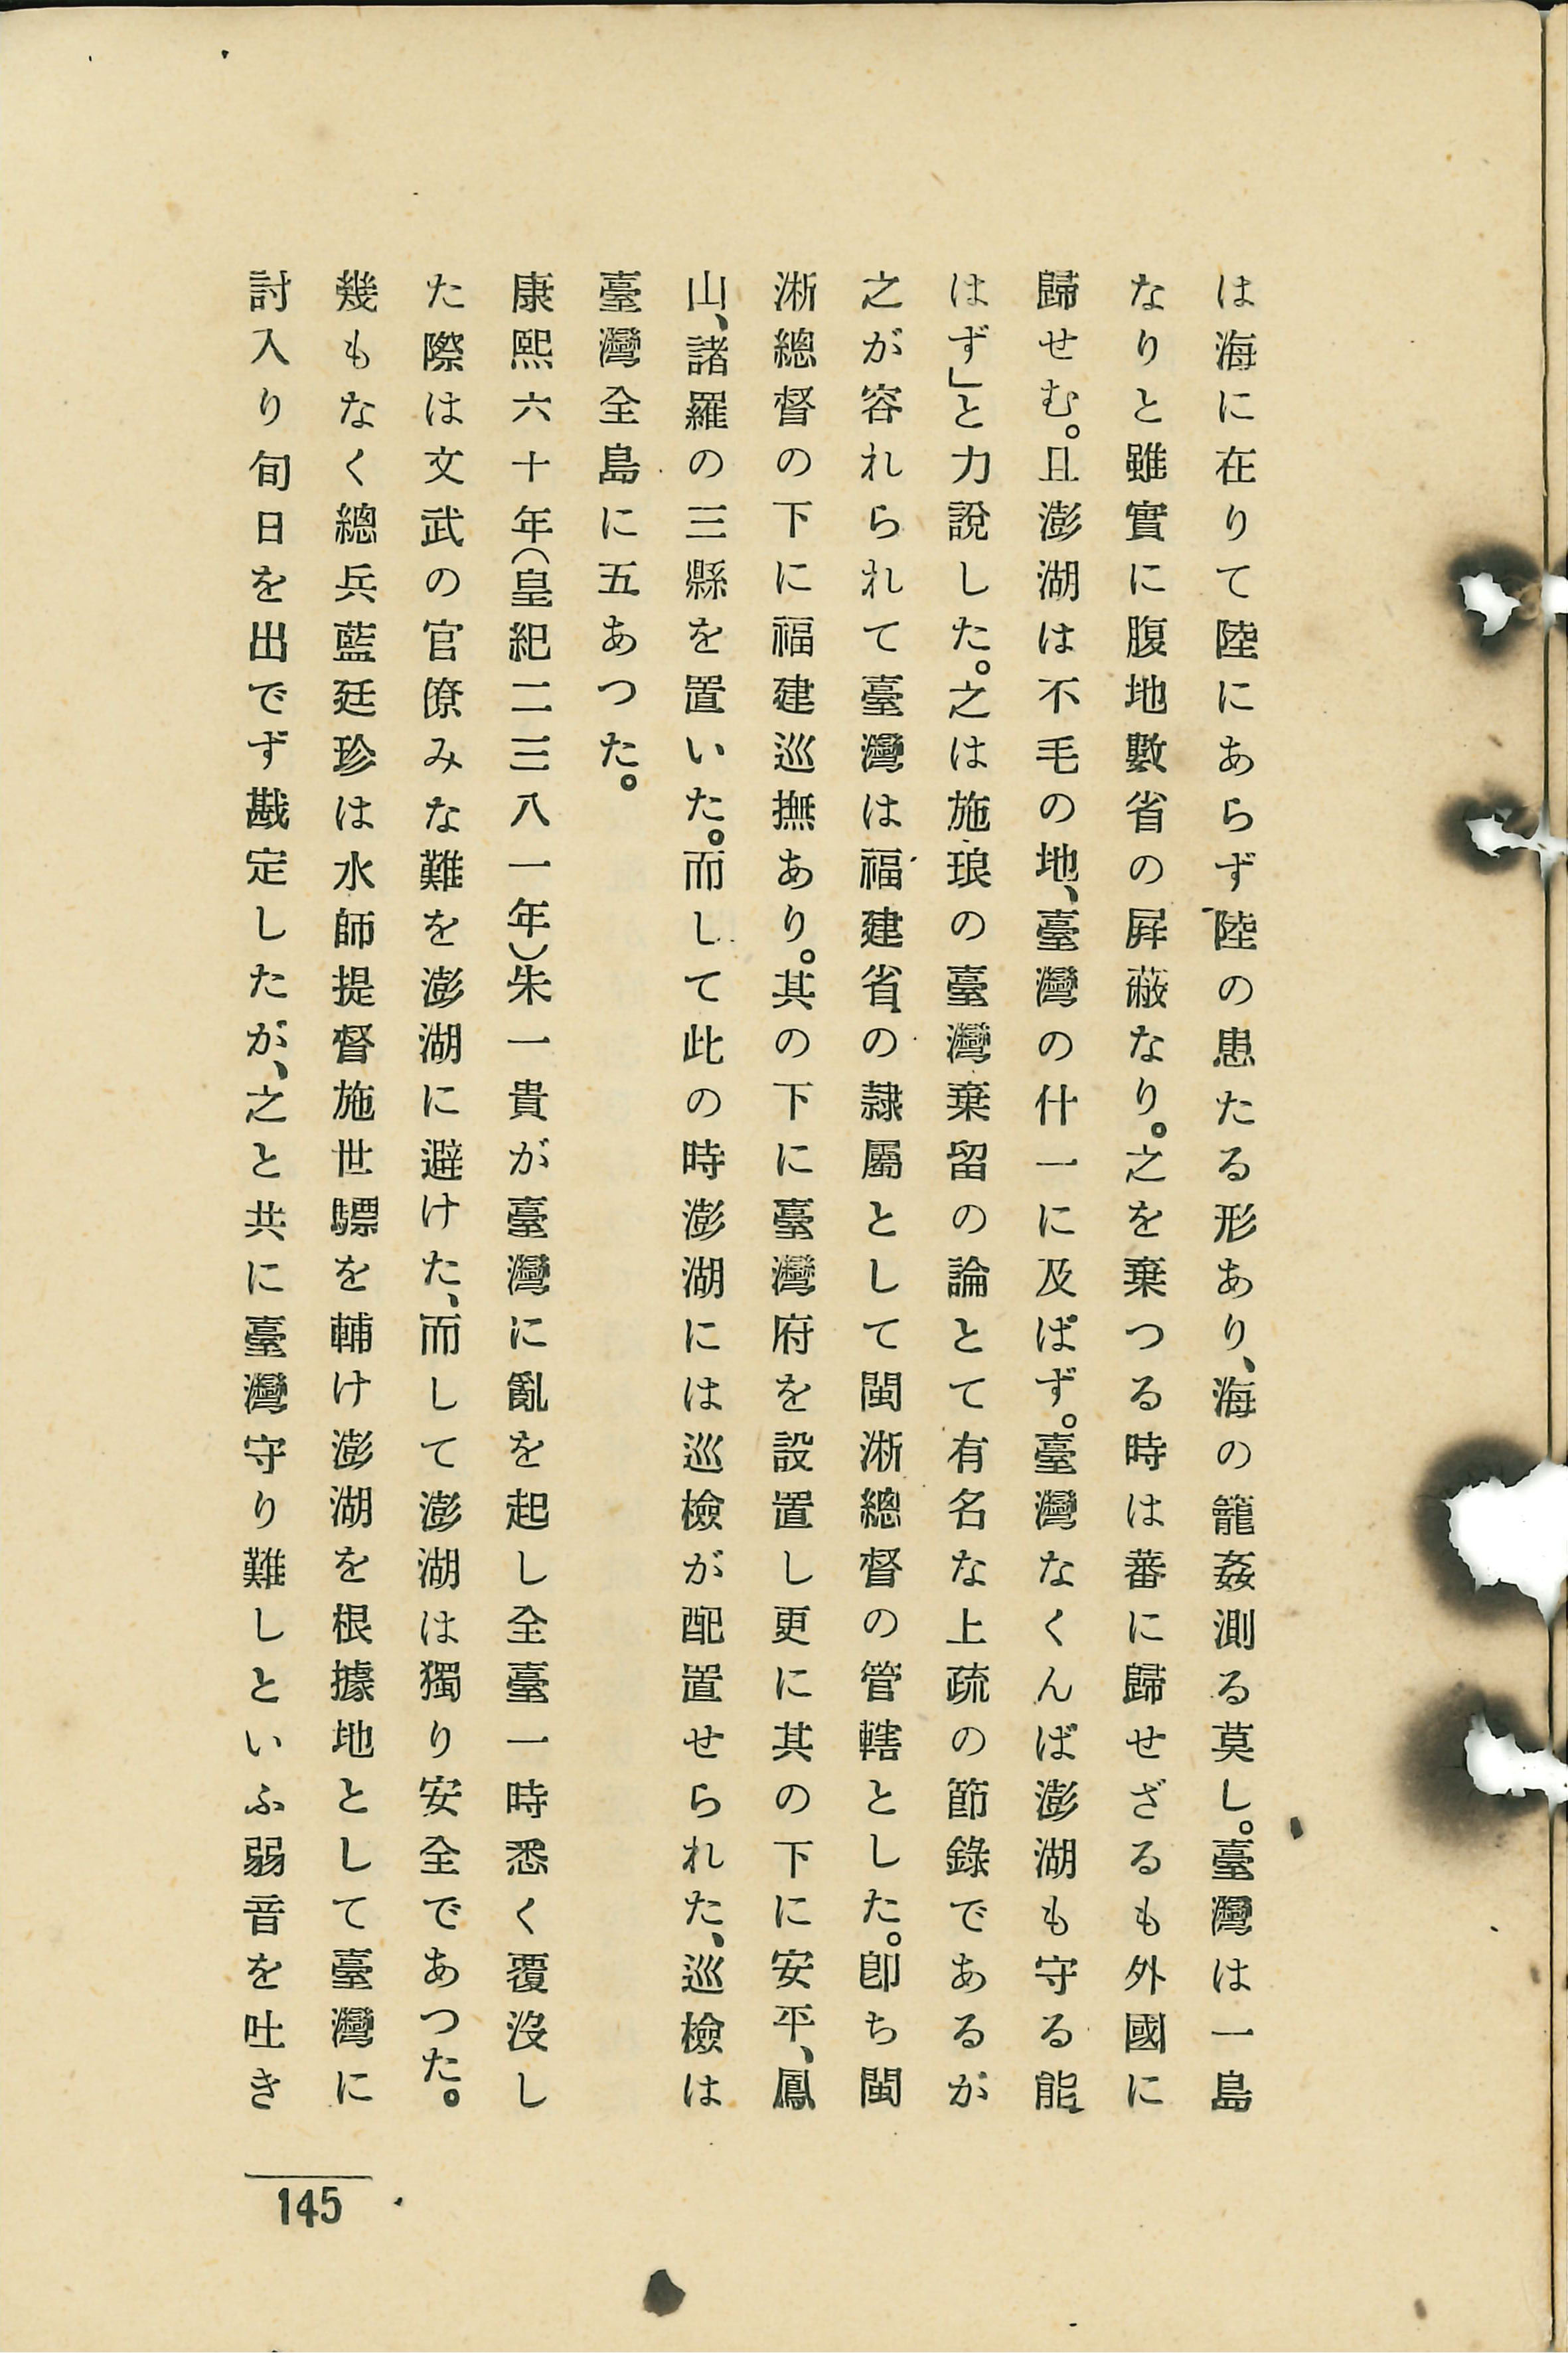 は海に在りて陸にあらず陸の患たる形あり、海の籠姦測る莫し。臺灣は一島
なりと雖實に腹地數省の屛蔽なり。之を棄つる時は蕃に歸せざるも外國に
歸せむ。且澎湖は不毛の地、臺灣の什一に及ばず。臺灣なくんば澎湖も守る能
はず」と力說した。之は施琅の臺灣棄留の論とて有名な上疏の節錄であるが
之が容れられて臺灣は福建省の隷屬として閩淅總督の管轄とした。卽ち閩
淅總督の下に福建巡撫あり。其の下に臺灣府を設置し更に其の下に安平、鳳
山、諸羅の三縣を置いた。而して此の時澎湖には巡檢が配置せられた、巡檢は
臺灣全島に五あつた。
康熙六十年(皇紀二三八一年)朱一貴が臺灣に亂を起し全臺一時悉く覆沒し
た際は文武の官僚みな難を澎湖に避けた、而して澎湖は獨り安全であつた。
幾もなく總兵藍廷珍は水師提督施世驃を輔け澎湖を根據地として臺灣に
討入り旬日を出でず戡定したが、之と共に臺灣守り難しといふ弱音を吐き
145